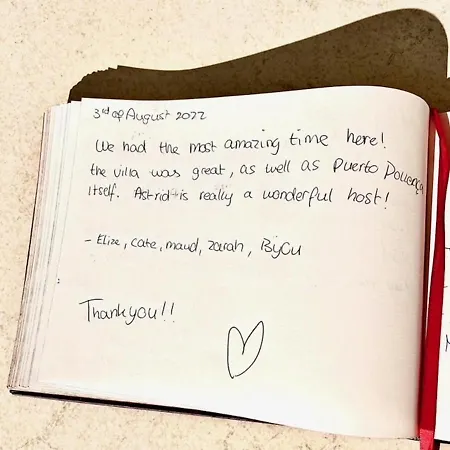 3rd of August 2022
We had the most amazing time here!
the villa was great, as well as Puerto Pollença
itself. Astrid is really a wonderful host!
- Elize, Cate, maud, zarah, Bijou
Thankyou!!